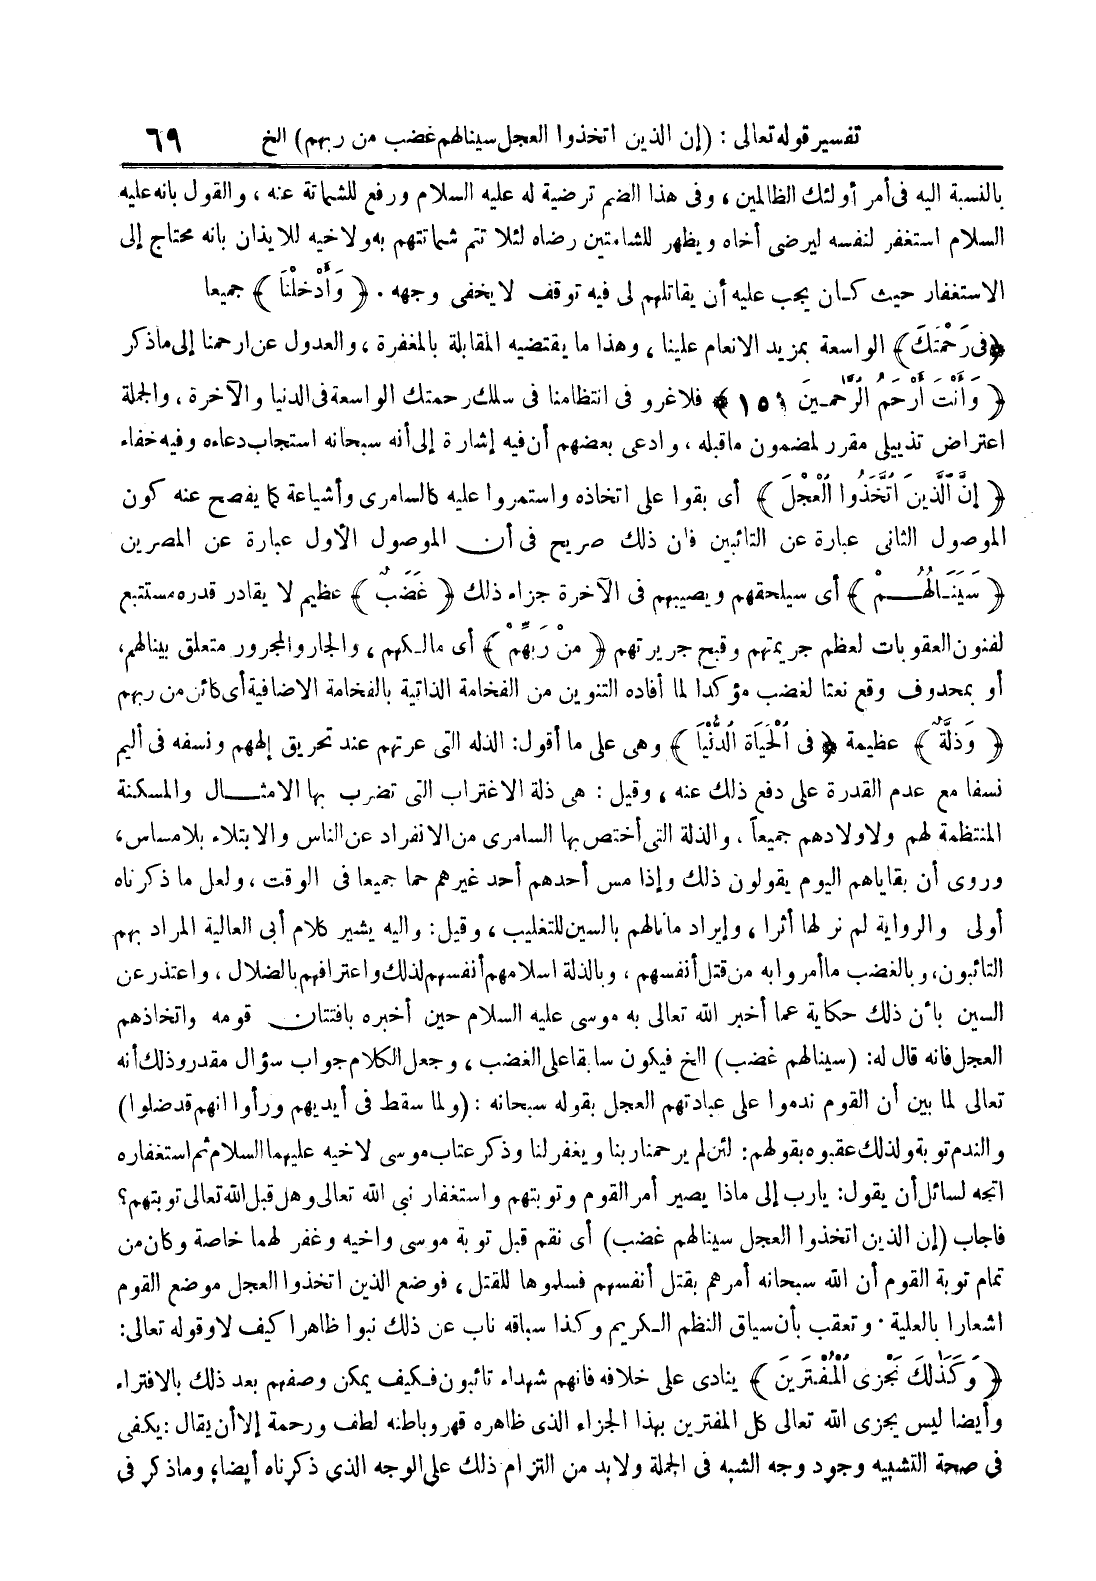 تفسير قوله تعالى : (إن الذين اتخذوا العجل سينالهم غضب من ربهم) الخ ٦٩
بالنسبة اليه فى أمر أولئك الظالمين ، وفى هذا الضم ترضية له عليه السلام ورفع للشماتة عنه ، والقول بانه عليه
السلام استغفر لنفسه ليرضى أخاه ويظهر للشامتين رضاه لئلا تتم شماتتهم به ولاخيه للايذان بانه محتاج إلى
الاستغفار حيث كان يجب عليه أن يقاتلهم لى فيه توقف لا يخفى وجهه . ﴿ وَأَدْخِلْنَا ﴾ جميعا
﴿ فِى رَحْمَتِكَ ﴾ الواسعة بمزيد الانعام علينا ، وهذا ما يقتضيه المقابلة بالمغفرة ، والعدول عن ارحمنا إلى ماذكر
﴿ وَأَنْتَ أَرْحَمُ الرَّاحِمِينَ ١٥١ ﴾ فلاغرو فى انتظامنا فى سلك رحمتك الواسعة فى الدنيا والآخرة ، والجملة
اعتراض تذييلى مقرر لمضمون ماقبله ، وادعى بعضهم أن فيه إشارة إلى أنه سبحانه استجاب دعاءه وفيه خفاء
﴿ إِنَّ ٱلَّذِينَ ٱتَّخَذُوا ٱلْعِجْلَ ﴾ أى بقوا على اتخاذه واستمروا عليه كالسامرى وأشياعة كما يفصح عنه كون
الموصول الثانى عبارة عن التائبين فان ذلك صريح فى أن الموصول الأول عبارة عن المصرين
﴿ سَيَنَالُهُمْ ﴾ أى سيلحقهم ويصيبهم فى الآخرة جزاء ذلك ﴿ غَضَبٌ ﴾ عظيم لا يقادر قدره مستتبع
لفنون العقوبات لعظم جريمتهم وقبح جريرتهم ﴿ مِنْ رَبِّهِمْ ﴾ أى مالكهم ، والجار والمجرور متعلق بينالهم،
أو بمحذوف وقع نعتا لغضب مؤكدا لما أفاده التنوين من الفخامة الذاتية بالفخامة الاضافية أى كائن من ربهم
﴿ وَذِلَّةٌ ﴾ عظيمة ﴿ فِى ٱلْحَيَاةِ ٱلدُّنْيَا ﴾ وهى على ما أقول: الذله التى عرتهم عند تحريق إلههم ونسفه فى أليم
نسفا مع عدم القدرة على دفع ذلك عنه ، وقيل : هى ذلة الاغتراب التى تضرب بها الامثال والمسكنة
المنتظمة لهم ولاولادهم جميعاً ، والذلة التى أختص بها السامرى من الانفراد عن الناس والابتلاء بلامساس،
وروى أن بقاياهم اليوم يقولون ذلك وإذا مس أحدهم أحد غيرهم حما جميعا فى الوقت ، ولعل ما ذكرناه
أولى والرواية لم نر لها أثرا ، وإيراد مانالهم بالسين للتغليب ، وقيل: واليه يشير كلام أبى العالية المراد بهم
التائبون، وبالغضب ما أمروا به من قتل أنفسهم ، وبالذلة اسلامهم أنفسهم لذلك واعترافهم بالضلال ، واعتذر عن
السين بأن ذلك حكاية عما أخبر الله تعالى به موسى عليه السلام حين أخبره بافتتان قومه واتخاذهم
العجل فانه قال له: (سينالهم غضب) الخ فيكون سابقا على الغضب ، وجعل الكلام جواب سؤال مقدر وذلك أنه
تعالى لما بين أن القوم ندموا على عبادتهم العجل بقوله سبحانه : (ولما سقط فى أيديهم ورأوا انهم قد ضلوا)
والندم توبة ولذلك عقبوه بقولهم: لئن لم يرحمنا ربنا ويغفر لنا وذكر عتاب موسى لاخيه عليهما السلام ثم استغفاره
اتجه لسائل أن يقول: يارب إلى ماذا يصير أمر القوم وتوبتهم واستغفار نبى الله تعالى وهل قبل الله تعالى توبتهم؟
فاجاب (إن الذين اتخذوا العجل سينالهم غضب) أى نقم قبل توبة موسى واخيه وغفر لهما خاصة وكان من
تمام توبة القوم أن الله سبحانه أمرهم بقتل أنفسهم فسلموها للقتل ، فوضع الذين اتخذوا العجل موضع القوم
اشعارا بالعلية . وتعقب بأن سياق النظم الكريم وكذا سباقه ناب عن ذلك نبوا ظاهرا كيف لا وقوله تعالى:
﴿ وَكَذَٰلِكَ نَجْزِى ٱلْمُفْتَرِينَ ﴾ ينادى على خلافه فانهم شهداء تائبون فكيف يمكن وصفهم بعد ذلك بالافتراء
وأيضا ليس يجزى الله تعالى كل المفترين بهذا الجزاء الذى ظاهره قهر وباطنه لطف ورحمة إلا أن يقال : يكفى
فى صحة التشبيه وجود وجه الشبه فى الجملة ولابد من التزام ذلك على الوجه الذي ذكرناه أيضا، وماذكر فى